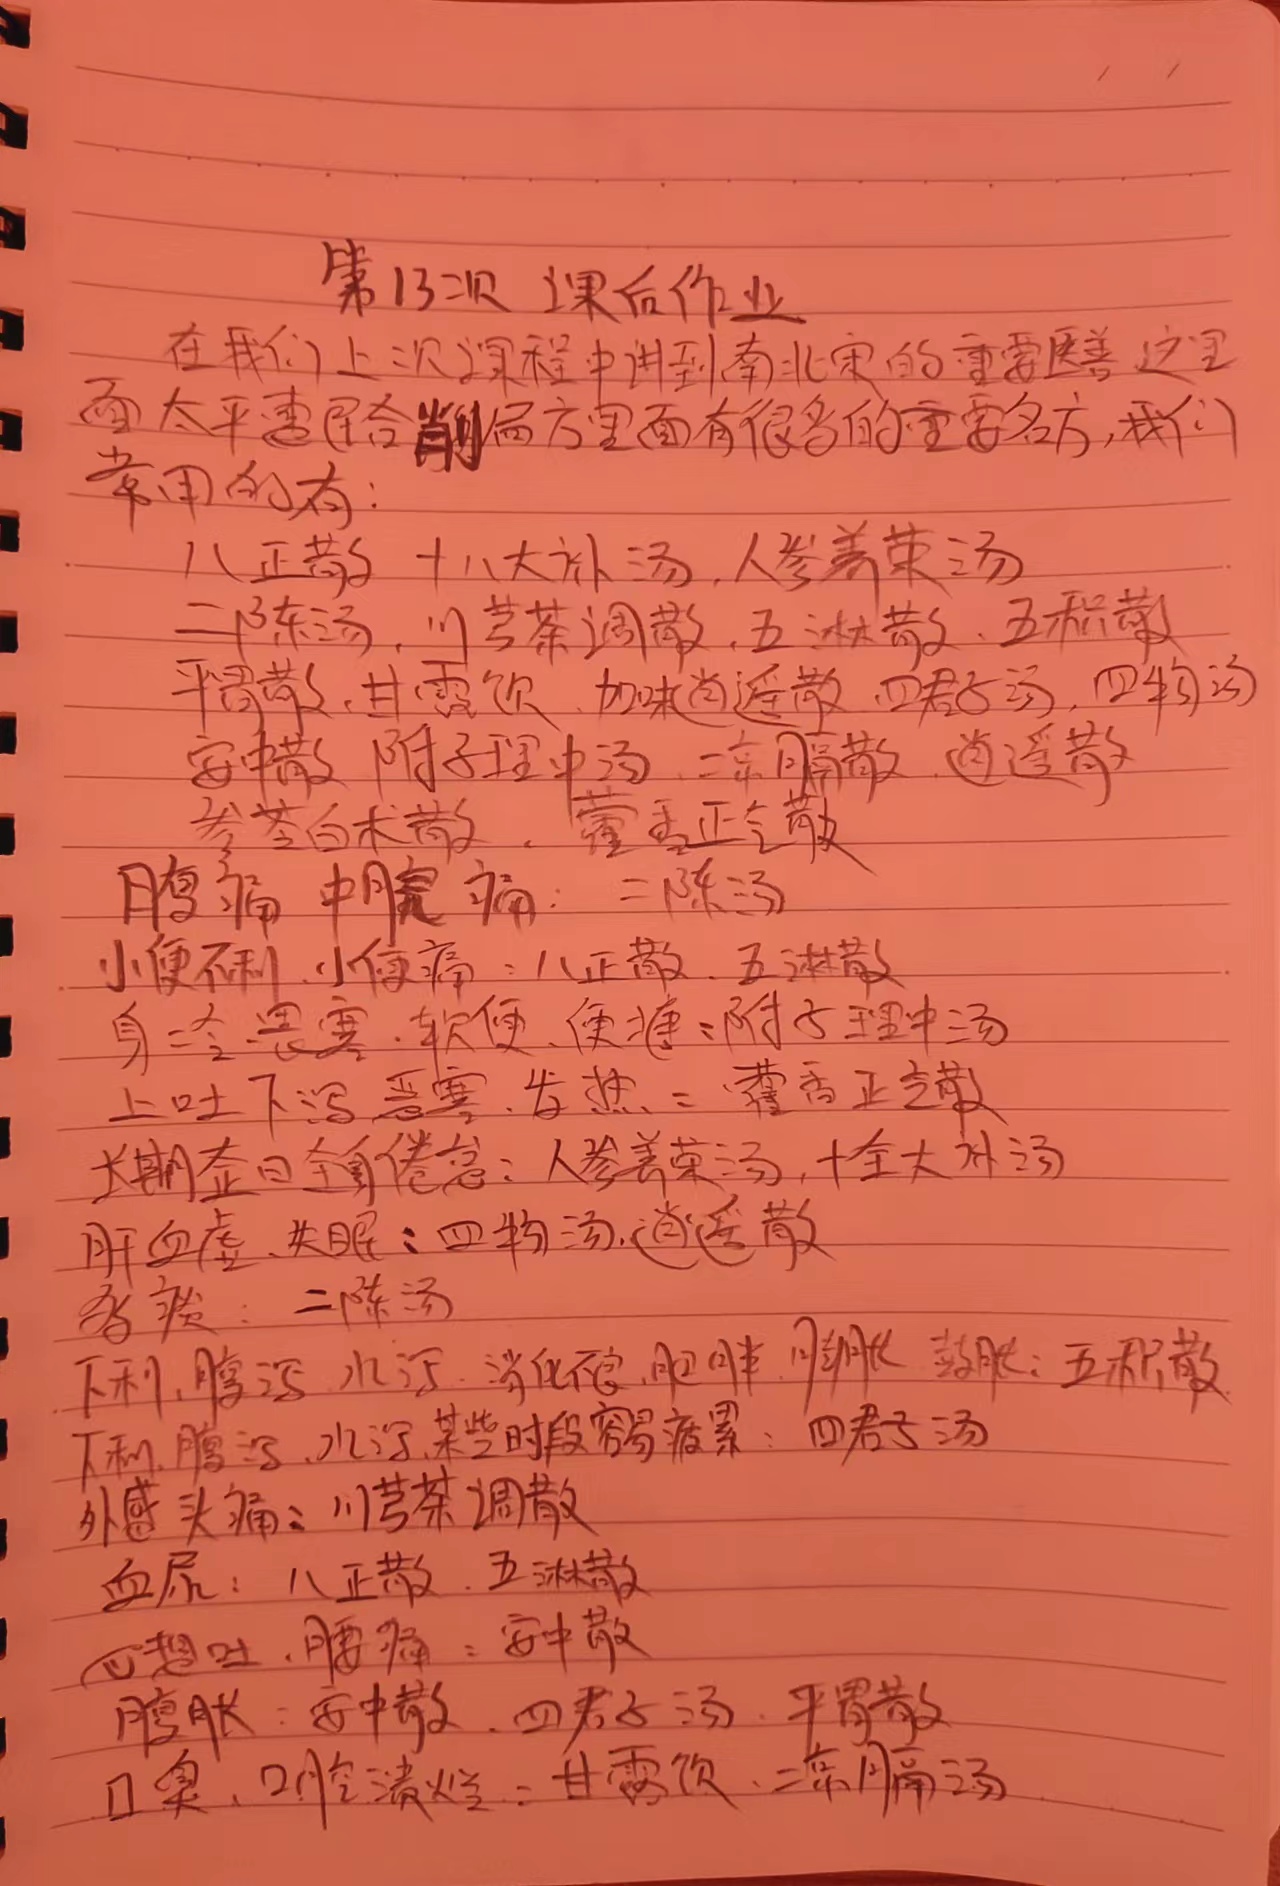 第13次 课后作业
在我们上次课程中讲到南北宋的重要医善这里
面太平惠民合剂局方里面有很多的重要名方,我们
常用的有:
八正散 十八大补汤.人参养荣汤
二陈汤.川芎茶调散.五淋散.五积散
平胃散.甘露饮.加味逍遥散.四君子汤.四物汤
安中散 附子理中汤.凉膈散.逍遥散
参苓白术散.藿香正气散
腹痛 中脘痛: 二陈汤
小便不利.小便痛:八正散.五淋散
身冷畏寒.软便.便溏:附子理中汤
上吐下泻 恶寒.发热:藿香正气散
长期 全身倦怠:人参养荣汤,十全大补汤
肝血虚.失眠:四物汤.逍遥散
多痰: 二陈汤
下利.腹泻.水泻.消化不良.肥胖. 鼓胀:五积散
下利.腹泻.水泻.某些时段容易疲累:四君子汤
外感头痛:川芎茶调散
血尿:八正散.五淋散
心想吐.腰痛:安中散
腹胀:安中散.四君子汤.平胃散
口臭.口腔溃烂:甘露饮.凉膈汤